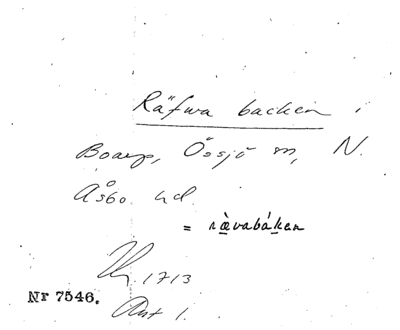 Räfwa backen i
Boarp, Össjö sn, N.
Åsbo hd
= rävabákan
1713
Nr 7546.
Akt 1.